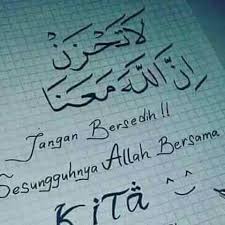 لَا تَحْزَنْ
إِنَّ اللَّهَ مَعَنَا
Jangan Bersedih !!
Sesungguhnya Allah Bersama
KiTa ^_^